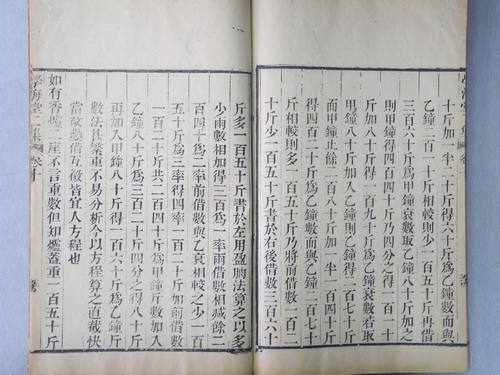 十斤加一半二十斤得六十斤爲乙鐘數而與
乙鐘二百一十斤相較則少一百五十斤再借
三百六十斤爲甲鐘衰數取乙鐘八十斤加之
則甲鐘得四百四十斤乃四分之得一百一十
斤加八十斤得一百九十斤爲乙鐘衰數若取
甲鐘八十斤加入乙鐘則乙鐘得二百七十斤
而甲鐘止餘二百八十斤加一半一百四十斤
得四百二十斤爲乙鐘數而與乙鐘二百七十
斤相較則多一百五十斤乃將前借數一百二
十斤少一百五十斤書於右後借數三百六十
斤多一百五十斤書於左用盈朒法算之以多
少兩數相加得三百爲一率兩借數相減餘二
百四十爲二率前借數與乙衰相較之少一百
五十斤爲三率得四率一百二十斤加前借數
一百二十斤共二百四十斤爲甲鐘斤數加入
乙鐘八十斤得三百二十斤四分之得八十斤
再加入甲鐘八十斤得一百六十斤爲乙鐘斤
數法甚繁重不易分析今以方程算之直截快
當故疊借互徵皆宜人方程也
如有香爐二座不言重數但知爐蓋重一百五十斤
學海堂二集 卷十